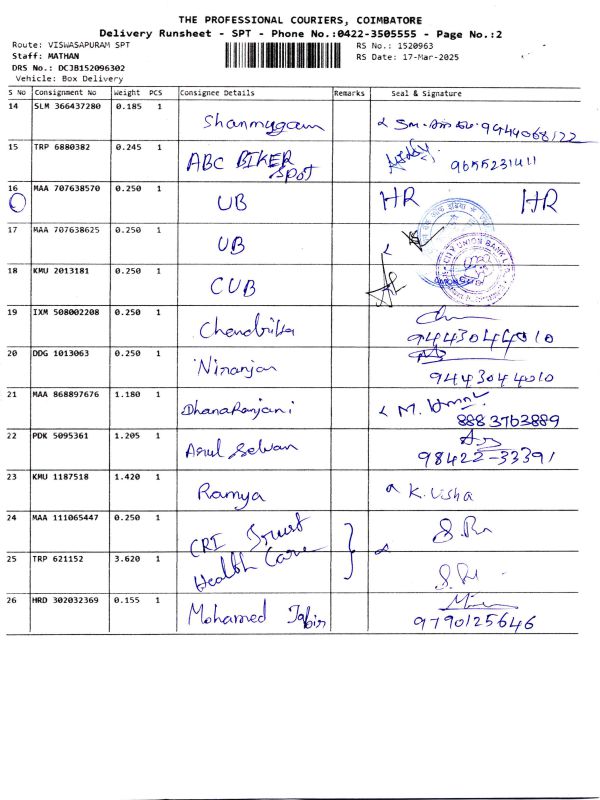 THE PROFESSIONAL COURIERS, COIMBATORE
Delivery Runsheet - SPT - Phone No.:0422-3505555 - Page No.:2
Route: VISWASAPURAM SPT
RS No.: 1520963
Staff: MATHAN
RS Date: 17-Mar-2025
DRS No.: DCJB152096302
Vehicle: Box Delivery
S No Consignment No Weight PCS Consignee Details Remarks Seal & Signature
14 SLM 366437280 0.185 1 Shanmugam
15 TRP 6880382 0.245 1 ABC BIKER Spot 9655231411
16 MAA 707638570 0.250 1 UB HR HR
17 MAA 707638625 0.250 1 UB
CITY UNION BANK LTD.
18 KMU 2013181 0.250 1 CUB
19 IXM 508002208 0.250 1 Chandrika 9443044010
20 DDG 1013063 0.250 1 Niranjan 9443044010
21 MAA 868897676 1.180 1 DhanaRanjani M. 8883763889
22 PDK 5095361 1.205 1 Arul Selvan 98422-33391
23 KMU 1187518 1.420 1 Ramya K. Usha
24 MAA 111065447 0.250 1 CRI Trust
25 TRP 621152 3.620 1 Health Care
26 HRD 302032369 0.155 1 Mohamed 9790125646